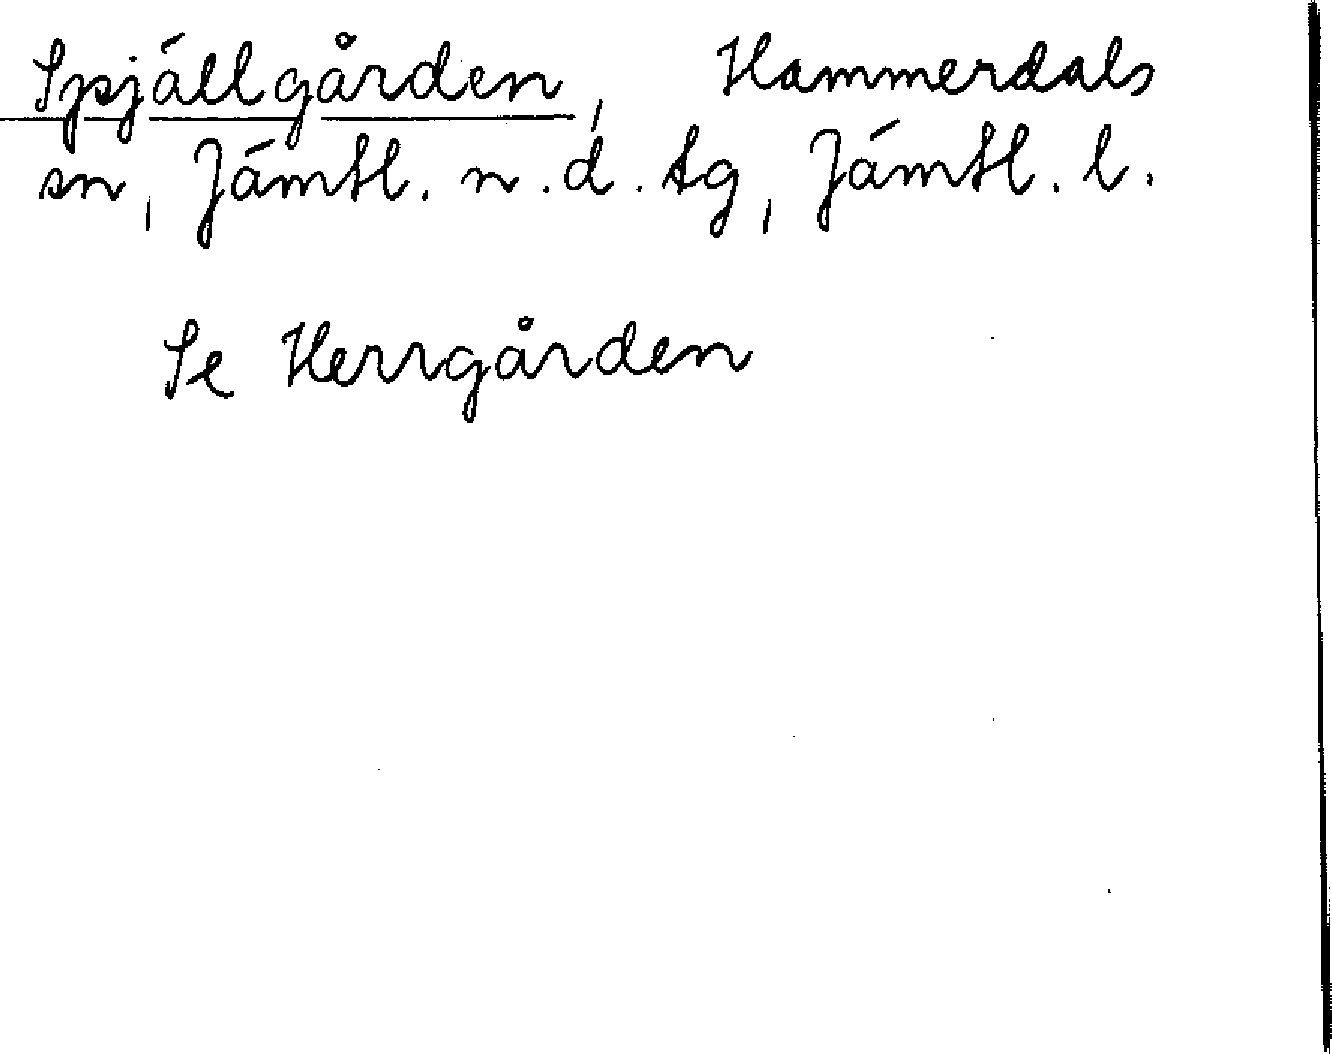 Spjällgården, Hammerdals
sn, Jämtl. n. d. tg, Jämtl. l.
Se Herrgården